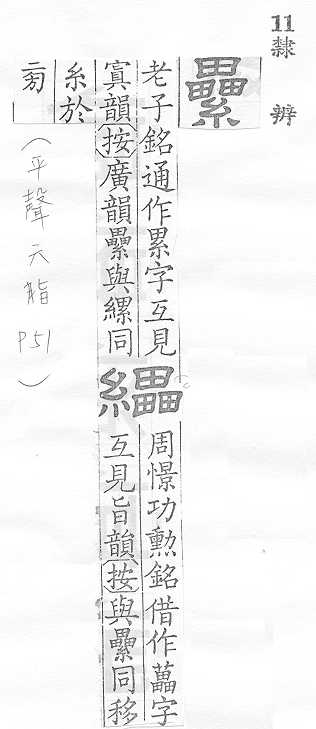 11 隸辨
纍
老子銘通作累字互見
寘韻按廣韻纍與縲同
周憬功勳銘借作藟字
互見旨韻按與纍同移
糸於
旁
(平聲 六脂 P51)